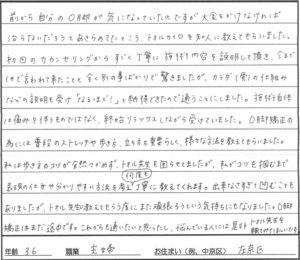 前から自分のO脚が気になっていたのですが大金をかけなければ
治らないだろうとあきらめてたところ、トオルカイロを友人に教えてもらいました。
初回のカウンセリングからすごく丁寧に施術内容を説明して頂き、今まで
他で言われて来たことと全く別の事ばかりで驚きましたが、カラダ(骨)の仕組み
などの説明を受け「なるほど!」と納得できたので通うことにしました。施術自体
は痛みを伴うものではなく、終始リラックスしながら受けていました。O脚矯正の
為には普段のストレッチや歩き方、立ち方も重要らしく、様々な方法を教えてもらいました。
私は歩き方のコツが全然つかめず、トオル先生を困らせてましたが、私がコツを掴むまで
何度も
表現の仕方や分かりやすい方法を考え丁寧に教えてくれます。出来なさすぎて凹むことも
ありましたが、トオル先生の教えてもらう度にまた頑張ろうという気持ちになりました。O脚
矯正はまだ途中です。これからも通いたいと思ったし、悩んでいる人には是非トオル先生を
頼ってほしいです。
年齢 36 職業 主婦 お住まい(例、中京区) 左京区